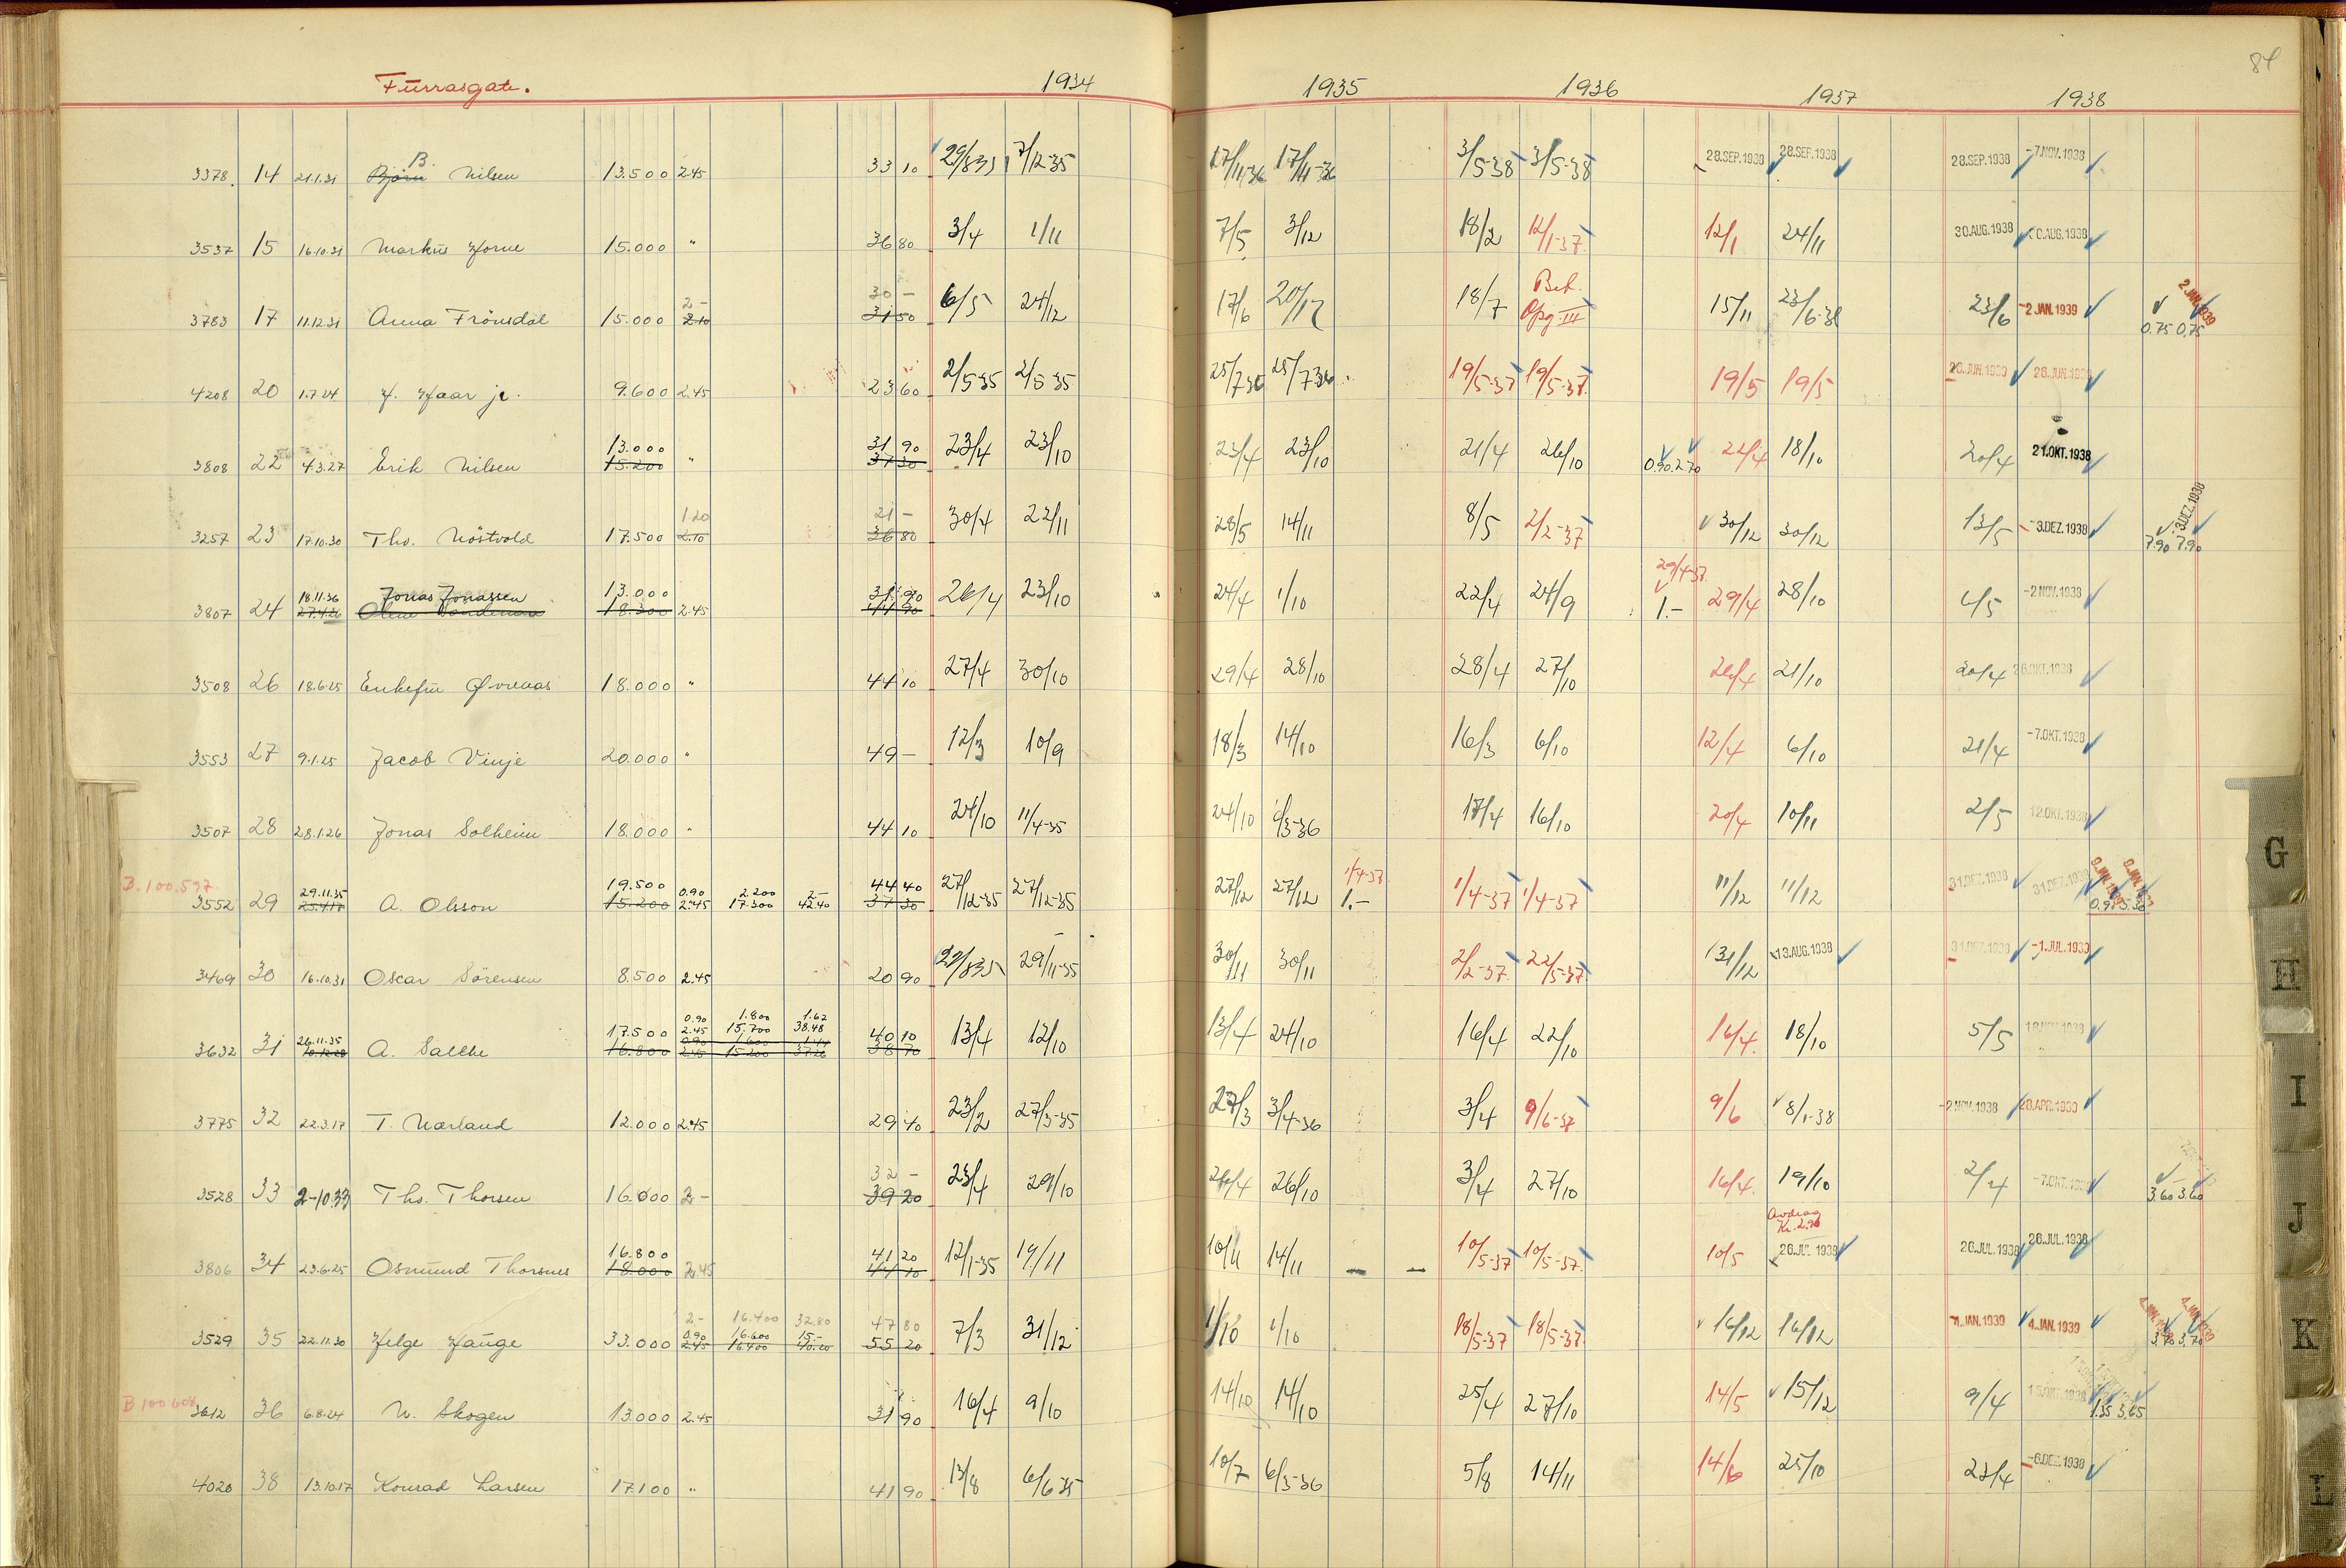 84
Furrasgate. 1934 1935 1936 1937 1938
3378. 14 21.1.31 Bjørn B. Nilsen 13.500 2.45 33 10 29/8 35 7/12-35 17/11-36 17/11-36 3/5-38 3/5-38 28.SEP.1938 28.SEP.1938 28.SEP.1938 -7.NOV.1938
3537 15 16.10.31 Markus 15.000 " 36 80 3/4 1/11 7/5 3/12 18/2 12/1-37. 12/1 24/11 30.AUG.1938 30.AUG.1938
30 - Bet.
3783 17 11.12.31 Anna Frönsdal 15.000 2.- 2.10 31 50 6/5 24/12 17/6 20/12 18/7 Opg III 15/11 23/6-38 23/6 -2 JAN.1939 0.75 0.75 2 JAN.1939
4208 20 1.7.24 9.600 2.45 23 60 2/5-35 2/5-35 25/7-36 25/7-36 19/5-37 19/5-37. 19/5 19/5 28.JUN.1939 28.JUN.1939
13.000 31 90
3808 22 4.3.27 Erik Nilsen 15.200 " 37 30 23/4 23/10 23/4 23/10 21/4 26/10 0.90 2.70 22/4 18/10 20/4 21.OKT.1938
1.20 21 -
3257 23 17.10.30 Tho. Nöstvold 17.500 2.10 36 80 30/4 22/11 28/5 14/11 8/5 2/2-37 30/12 30/12 13/5 -3.DEZ.1938 7.90 7.90 3.DEZ.1938
18.11.36 Jonas Jonassen 13.000 31 90 29/4-37
3807 24 27.4.26 18.300 2.45 44 90 26/4 23/10 24/4 1/10 22/4 24/9 1.- 29/4 28/10 4/5 -2 NOV.1938
3508 26 18.6.25 Enkefru 18.000 " 44 10 27/4 30/10 29/4 28/10 28/4 27/10 26/4 21/10 20/4 26.OKT.1938
3553 27 9.1.25 Jacob Vinje 20.000 " 49 - 12/3 10/9 18/3 14/10 16/3 6/10 12/4 6/10 21/4 -7.OKT.1938
3507 28 28.1.26 Jonas Solheim 18.000 " 44 10 24/10 11/4-35 24/10 6/3-36 17/4 16/10 20/4 10/11 2/5 12.OKT.1938
B.100.597 29.11.35 19.500 0.90 2.200 2.- 44 40 1/4-37
3552 29 23.4.17 A. Olsson 15.200 2.45 17.300 42.40 37 30 27/12-35 27/12-35 27/12 27/12 1.- 1/4-37 1/4-37 11/12 11/12 31.DEZ.1938 31.DEZ.1938
3469 30 16.10.31 Oscar Sörensen 8.500 2.45 20 90 22/8 35 29/11-35 30/11 30/11 2/2-37. 22/5-37 31/12 13.AUG.1938 31.DEZ.1938 -1.JUL.1939
0.90 1.800 1.62
26.11.35 17.500 2.45 15.700 38.48 40 10
3632 31 10.12.28 A. 16.800 2.45 15.200 37.26 38 70 13/4 12/10 13/4 24/10 16/4 22/10 16/4. 18/10 5/5 18.NOV.1938
3775 32 22.3.17 T. Narland 12.000 2.45 29 40 23/2 27/3-35 27/3 3/4-36 3/4 9/6-37 9/6 8/1-38 -2 NOV.1938 28.APR.1939
32 -
3528 33 2-10.33 Tho. Thorsen 16.000 2.- 39 20 23/4 29/10 26/4 26/10 3/4 27/10 16/4. 19/10 2/4 -7.OKT.1938 3.60 3.60
16.800 41 20 Avdrag Kr. 2.90
3806 34 23.6.25 Osmund Thorsnes 18.000 2.45 44 10 12/1-35 19/11 10/4 14/11 — — 10/5-37 10/5-37. 10/5 26.JUL.1938 26.JUL.1938 26.JUL.1938
2.- 16.400 32.80 47 80
0.90 16.600 15.-
3529 35 22.11.30 Helge Hauge 33.000 2.45 16.400 40.20 55 20 7/3 31/12 1/10 1/10 18/5-37 18/5-37. 16/12 16/12 -4.JAN.1939 4.JAN.1939 3.70 3.70
B 100.604
3612 36 6.8.24 N. Skogen 13.000 2.45 31 90 16/4 9/10 14/10 14/10 25/4 27/10 14/5 15/12 9/4 15.OKT.1938 1.35 3.65
4020 38 13.10.17 Konrad Larsen 17.100 " 41 90 13/8 6/6 35 10/7 6/3-36 5/8 14/11 14/6 25/10 23/4 -6.DEZ.1938
G
H
I
J
K
L